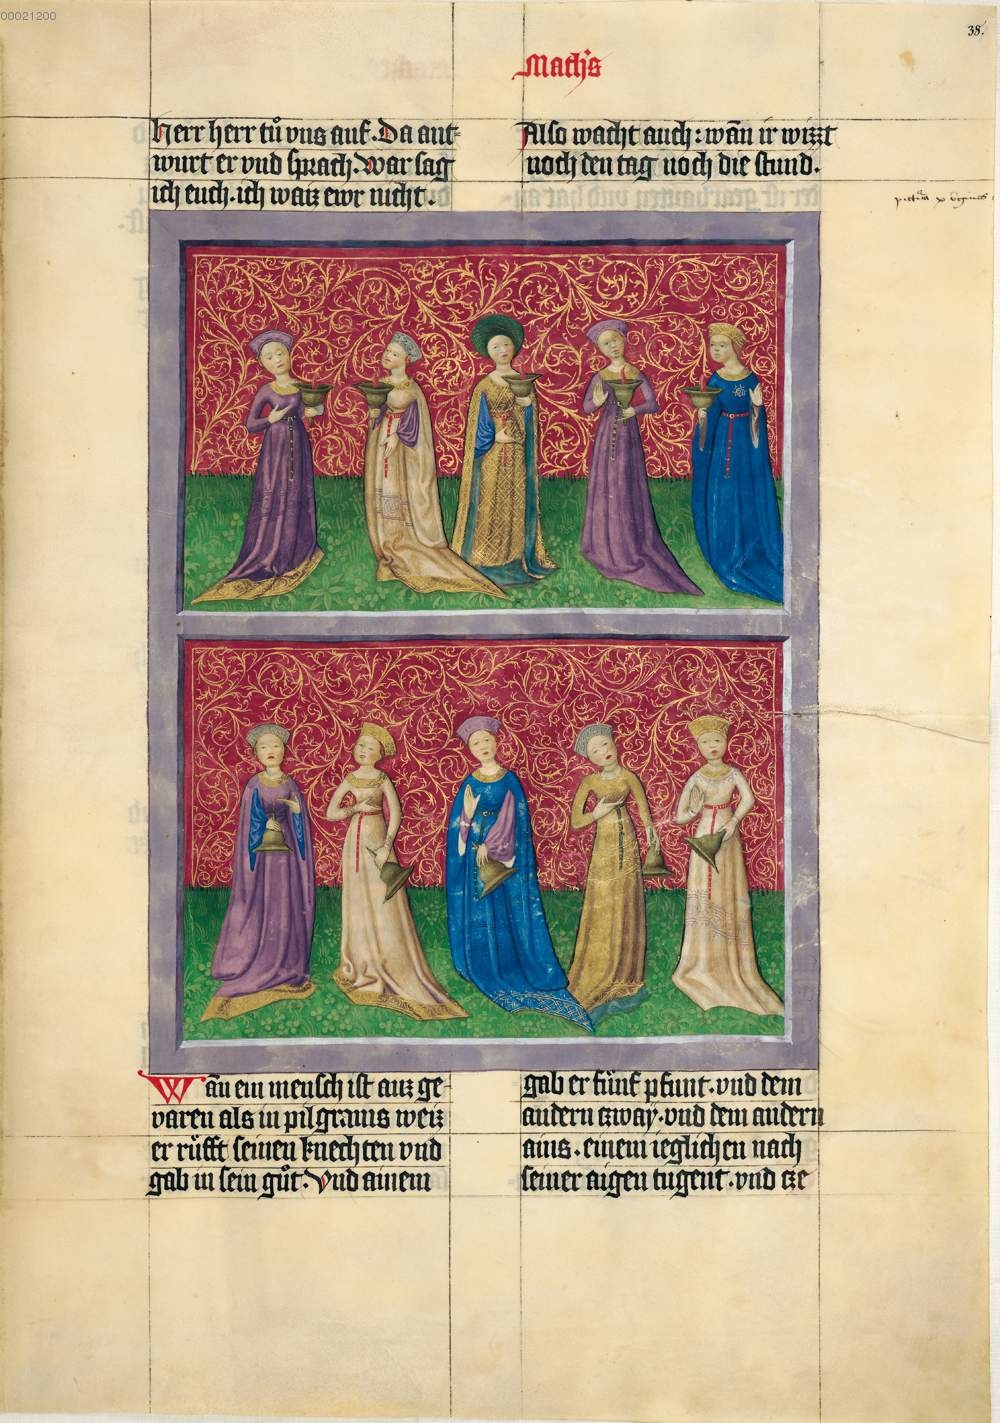 00021200
38.
Mach's
Herr herr tů vns auf. Da ant-
wurt er vnd sprach. War sag
ich euch. ich waiz ewr nicht.
Also wacht auch: wān ir wizzt
noch den tag noch die stund.
Wān ein mensch ist auz ge-
varen als in pilgrams weiz
er rüfft seinen knechten vnd
gab in sein gůt. Vnd ainem
gab er fünf pfunt. vnd dem
andern tzway. vnd dem andern
ains. einem ieglichen nach
seiner aigen tugent. vnd tze